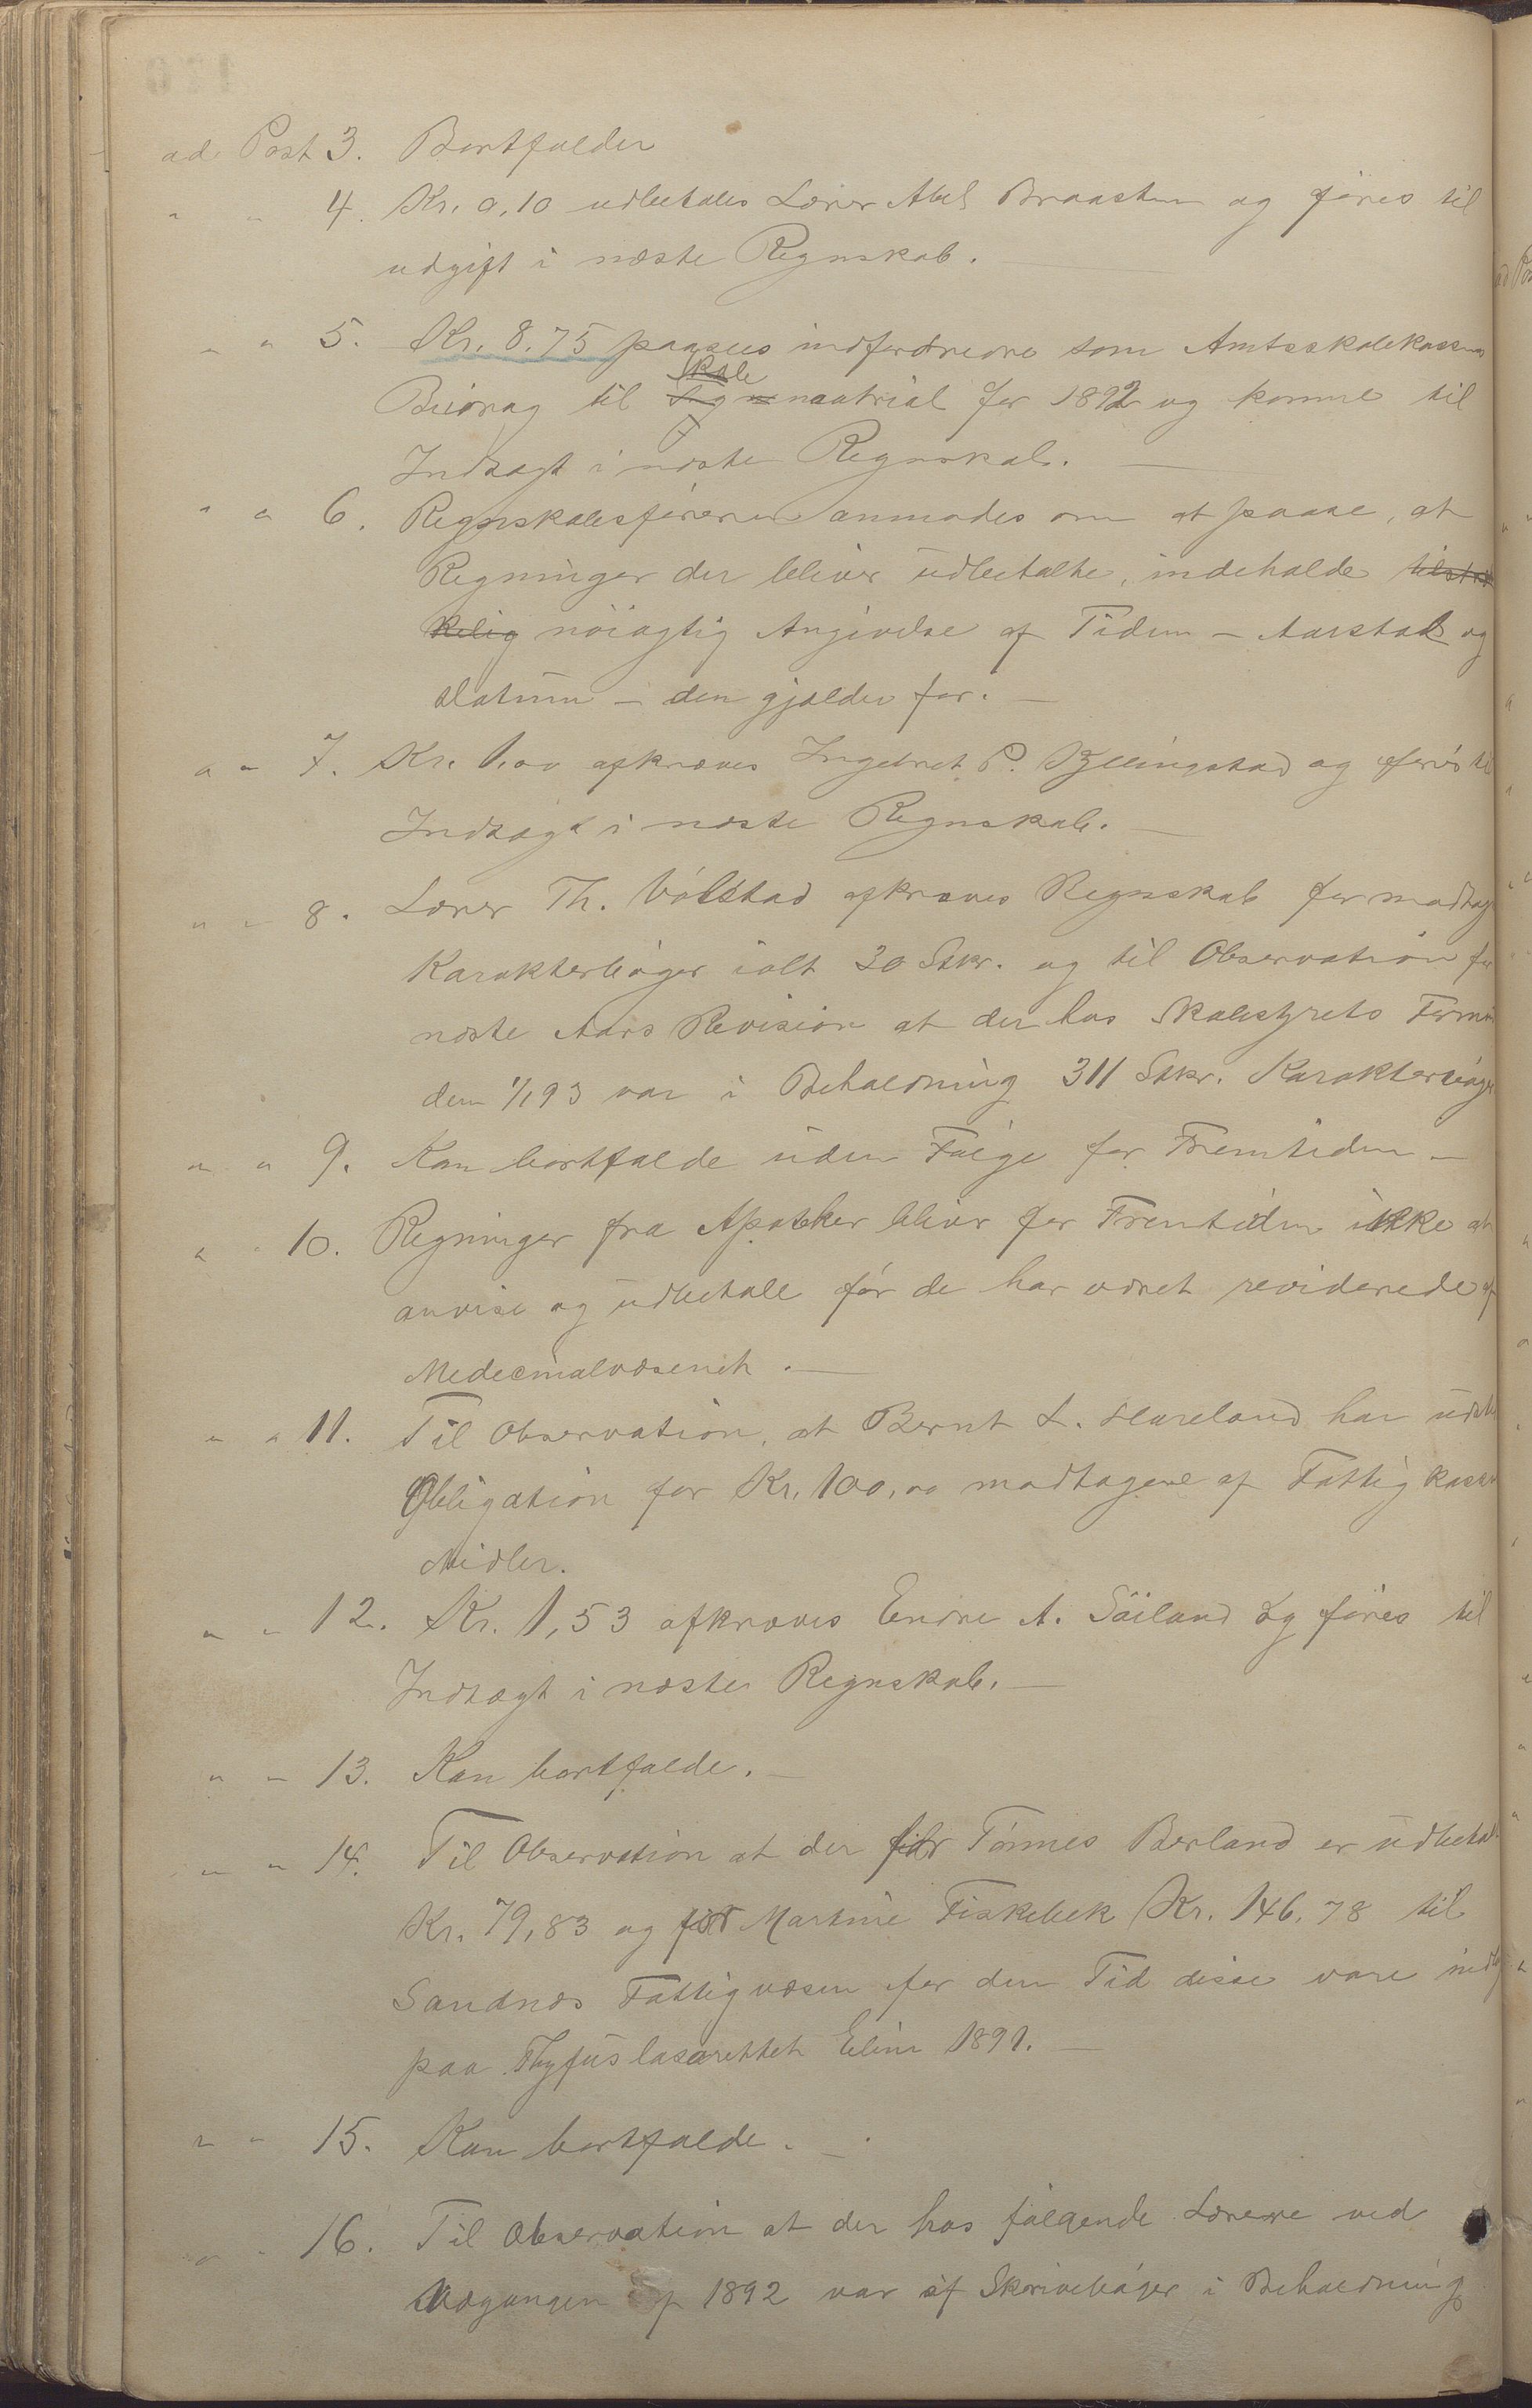 ad. Post 3. Bortfalder
" " 4. Kr. 0,10 udbetales Lærer Abel Braasten og føres til
udgift i næste Regnskab.
" " 5. Kr. 8.75 paasees indfordrede som Amtsskolekassens
Bidrag til Skolemaatrial for 1892 og komme til
Indtægt i næste Regnskab.
" " 6. Regnskabsføreren anmodes om at paase, at
Regninger der bliver udbetalte, indeholde tilstræk
kelig nöiagtig Angivelse af Tiden – Aarstal og
Datum – den gjælder for.
" " 7. Kr. 1.00 afkræves Ingebret P. Bjellingstad og føres til
Indtægt i næste Regnskab.
" " 8. Lærer Th. Vólstad afkræves Regnskab for modtag
Karakterbøger ialt 30 Stkr. og til Observation for
næste Aars Revision at der hos Skolestyrets Form
den 1/1 93 var i Behældning 311 Stkr. Karakterbøge
" " 9. Kan bortfalde uden Følge for Fremtiden –
" " 10. Regninger fra Apotheker bliver for Fremtiden ikke at
anvise og udbetale før de har været reviderede af
Medecinalvæsenet.
" " 11. Til Observation, at Bernt L. Hareland har udst
Obligation for Kr. 100,00 modtagne af Fattigkassen
Midler.
" " 12. Kr. 1,53 afkræves Endre A. Söiland og føres til
Indtægt i næste Regnskab.
" " 13. Kan bortfalde.
" " 14. Til Observation at der for Tønnes Berland er udbetal
Kr. 79,83 og for Martine Fiskebek Kr. 146,78 til
Sandnæs Fattigvæsen for den Tid disse vare indl
paa Thyfuslasarettet Elim 1891.
" " 15. Kan bortfalde.
" " 16. Til Observation at der hos følgende Lærere ved
Udgangen af 1892 var af Skrivebøger i Behældning